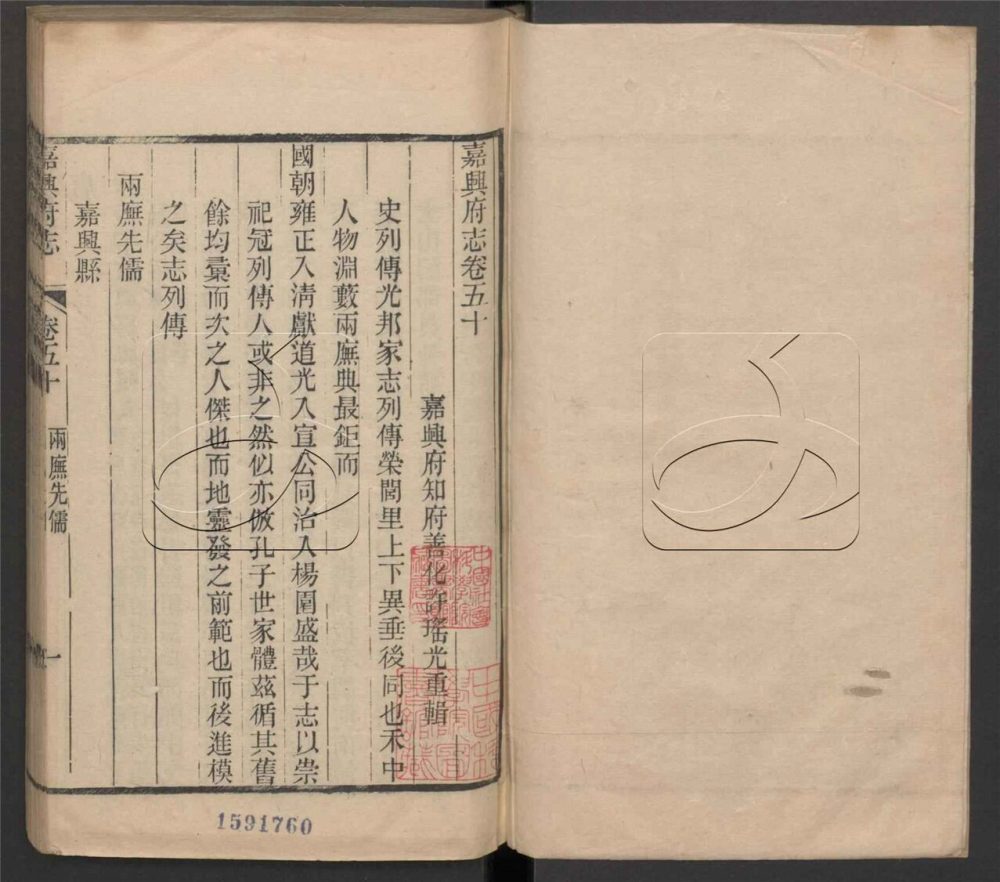 嘉興府志卷五十
嘉興府知府善化許瑤光重輯
史列傳光邦家志列傳榮閭里上下異垂後同也禾中
人物淵藪兩廡典最鉅而
國朝雍正入清獻道光入宣公同治入楊園盛哉于志以崇
祀冠列傳人或非之然似亦倣孔子世家體茲循其舊
餘均彙而次之人傑也而地靈發之前範也而後進模
之矣志列傳
兩廡先儒
嘉興縣
嘉興府志
卷五十
兩廡先儒
一
1591760